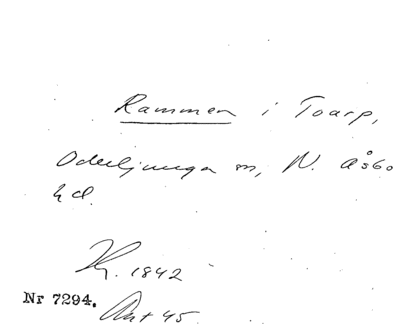 Rammen i Toarp,
Oderljunga sn, N. Åsbo
hd.
Kg. 1842
Nr 7294. Ant 45